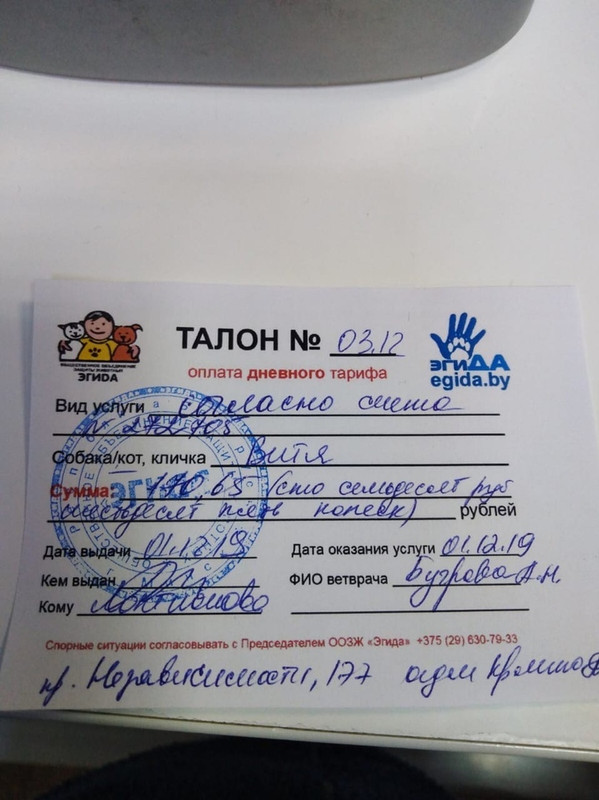 ТАЛОН № 03.12
оплата дневного тарифа
ОБЩЕСТВЕННОЕ ОБЪЕДИНЕНИЕ
ЗАЩИТЫ ЖИВОТНЫХ
ЭГИДА
эгиДА
egida.by
Вид услуги согласно счета
272705
Собака/кот, кличка Витя
Сумма: 170,65 (сто семьдесят руб
шестьдесят пять копеек) рублей
Дата выдачи 01.12.19 Дата оказания услуги 01.12.19
Кем выдан ФИО ветврача Бугрова А.Н.
Кому
Спорные ситуации согласовывать с Председателем ООЗЖ «Эгида» +375 (29) 630-79-33
пр. Независимости, 177